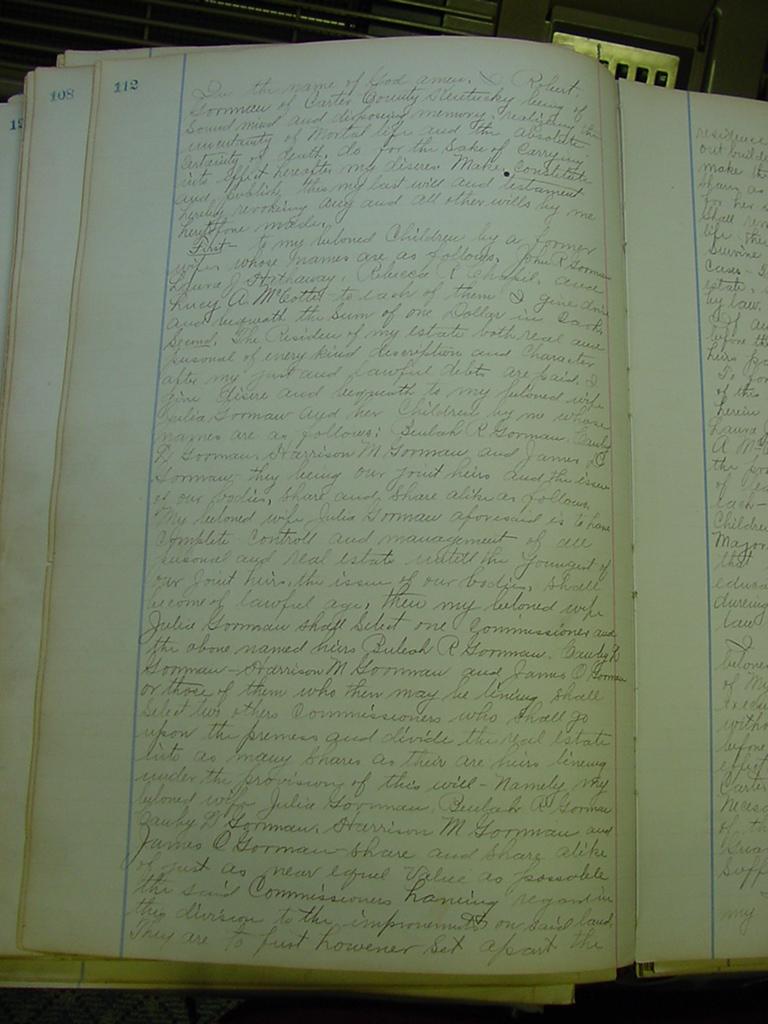 108
112
In the name of God amen. I Robert
Gorman of Carter County Kentucky being of
sound mind and disposing memory, realizing the
uncertainty of Mortal life and the absolute
certainty of death, do for the sake of carrying
into effect hereafter my disires. Make, Constitute
and publish this my last will and testament
hereby revoking any and all other wills by me
heretofore made.
First - to my beloved Children by a former
wife whose names are as follows. John R Gorman
Laura J Hethaway, Rebecca R and
Lucy A. to each of them I give
and bequeath the sum of one Dollar in Cash
Second. The Residue of my estate both real and
personal of every kind description and Character
after my just and lawful debts are paid. I
give disire and bequeath to my beloved wife
Julia Gorman and her Children by me whose
names are as follows: Beulah R Gorman,
D Gorman, Harrison M Gorman and James O
Gorman, they being our joint heirs and the issue
of our bodies, share and share alike as follows.
My beloved wife Julia Gorman aforesaid is to have
complete controll and management of all
personal and real estate untill the youngest of
our Joint heirs, the issue of our bodies, shall
become of lawful age, then my beloved wife
Julia Gorman shall Select one Commissioner and
the above named heirs Buleah R Gorman.
Gorman - Harrison M Gorman and James O Gorman
or those of them who then may be living shall
Select two others Commissioners who shall go
upon the premess and divide the real estate
into as many shares as their are heirs living
under the provision of this will - Namely my
beloved wife Julia Gorman, Beulah R Gorman
D Gorman, Harrison M Gorman and
James O Gorman - share and share alike
of just as near equal value as possoble
the said Commissioners having regard in
this division to the improvements on said land.
They are to first however set apart the
residence
make th
shall
life
Survive
estate,
by law.
before the
heirs
of this
herein
Laura J
the
of
each -
Children
Major
that
educa
dureing
law
I
belove
of my
witho
before
effect
Carter
necess
of th
my